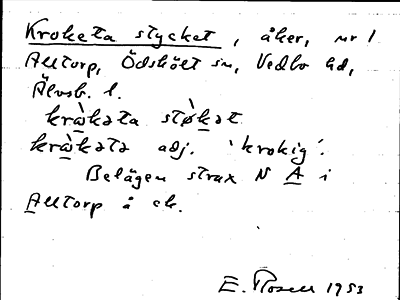 Kroketa stycket, åker, nr 1
Alltorp, Ödskölt sn, Vedbo hd,
Älvsb. l.
kràkəta stø̀kət
kràkətə adj. 'krokig'.
Belägen strax N A i
Alltorp å ek.
E. Rosell 1953